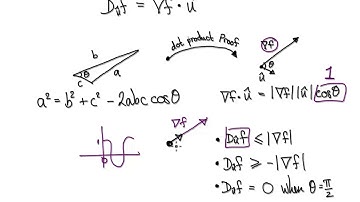 Dᵤf = ∇f · û
b
θ
c
a
dot product Proof
∇f
θ
û
a² = b² + c² - 2abc cosθ
∇f · û = |∇f||û| cosθ
1
1
0
∇f
• Dᵤf ≤ |∇f|
• Dᵤf ≥ -|∇f|
• Dᵤf = 0 when θ = π/2